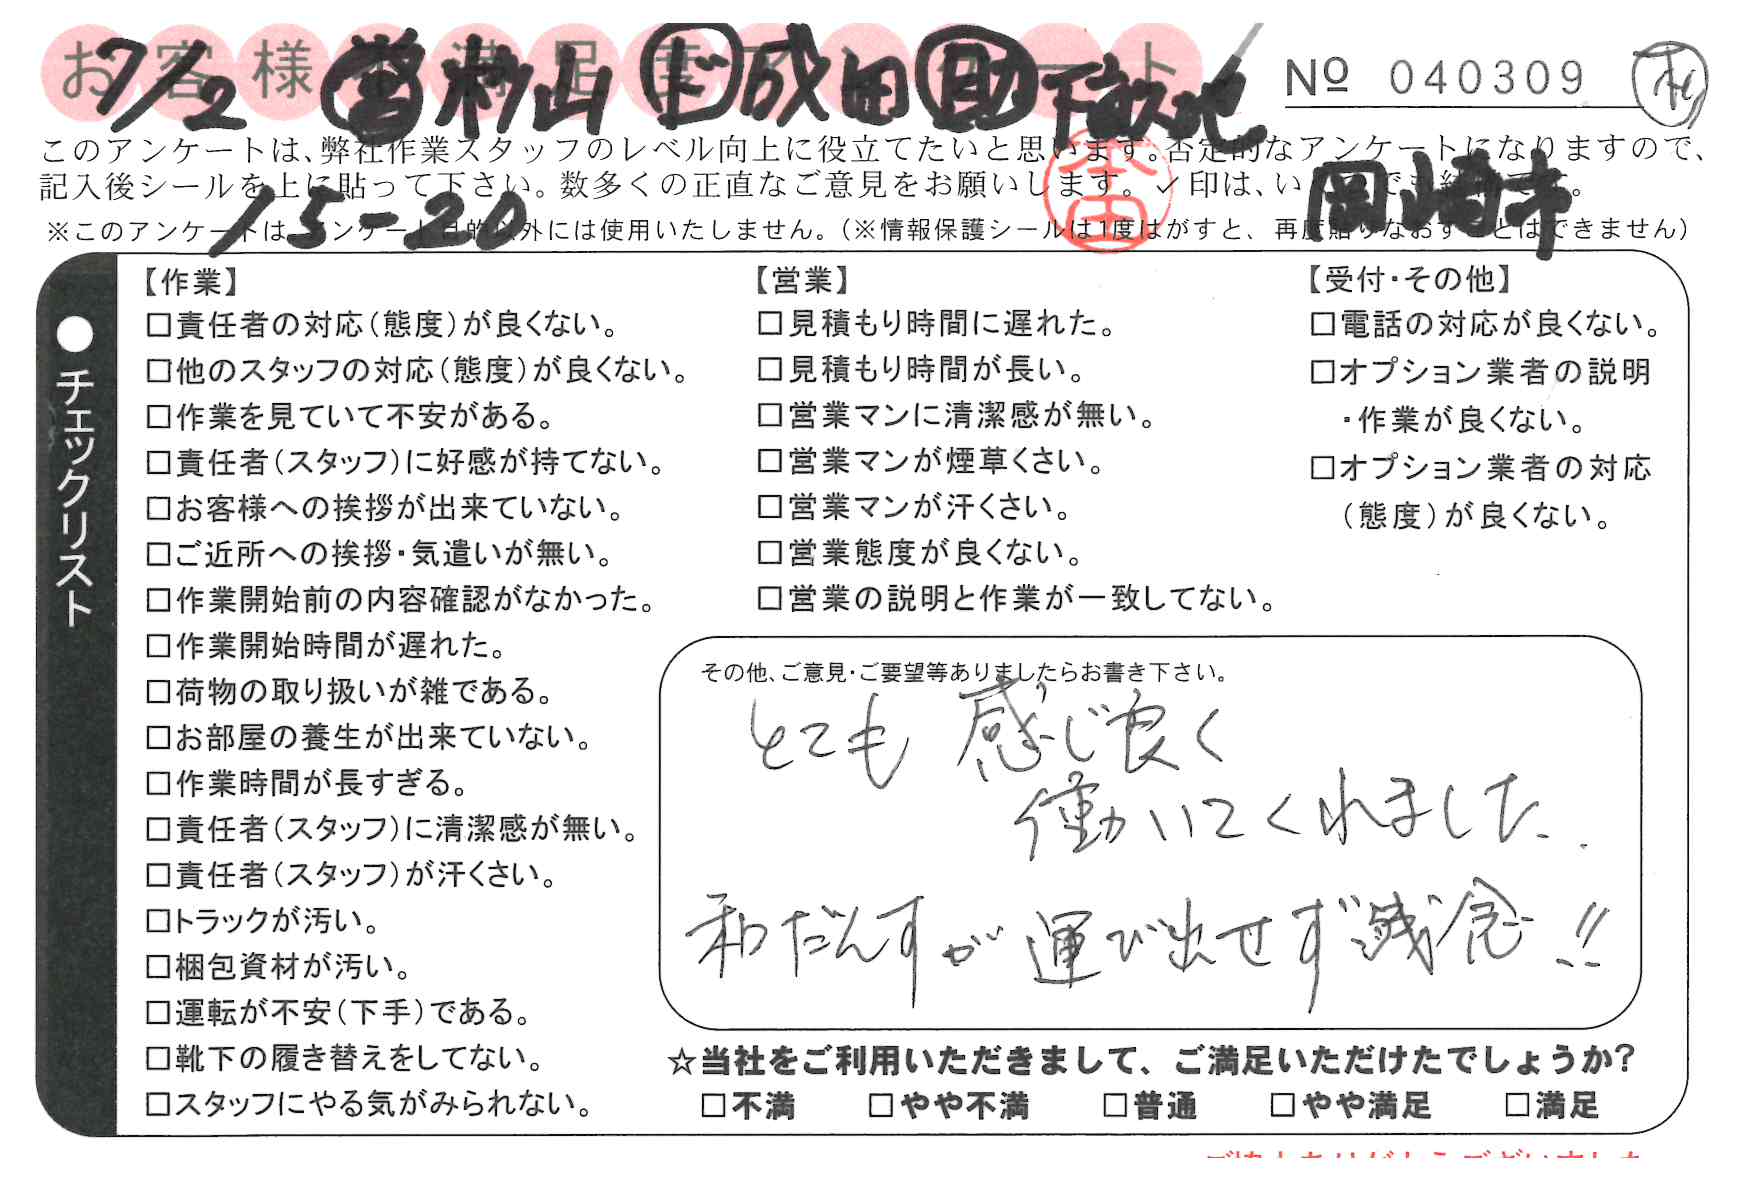 お客様不満足度アンケート
7/2 ㊂営 杉山 ド 成田 助
15-20
岡崎市
No 040309
このアンケートは、弊社作業スタッフのレベル向上に役立てたいと思います。否定的なアンケートになりますので、
記入後シールを上に貼って下さい。数多くの正直なご意見をお願いします。✓印は、いくつでも結構です。
※このアンケートは、アンケート目的以外には使用いたしません。(※情報保護シールは1度はがすと、再度貼りなおすことはできません)
本田
●チェックリスト
【作業】
□責任者の対応(態度)が良くない。
□他のスタッフの対応(態度)が良くない。
□作業を見ていて不安がある。
□責任者(スタッフ)に好感が持てない。
□お客様への挨拶が出来ていない。
□ご近所への挨拶・気遣いが無い。
□作業開始前の内容確認がなかった。
□作業開始時間が遅れた。
□荷物の取り扱いが雑である。
□お部屋の養生が出来ていない。
□作業時間が長すぎる。
□責任者(スタッフ)に清潔感が無い。
□責任者(スタッフ)が汗くさい。
□トラックが汚い。
□梱包資材が汚い。
□運転が不安(下手)である。
□靴下の履き替えをしてない。
□スタッフにやる気がみられない。
【営業】
□見積もり時間に遅れた。
□見積もり時間が長い。
□営業マンに清潔感が無い。
□営業マンが煙草くさい。
□営業マンが汗くさい。
□営業態度が良くない。
□営業の説明と作業が一致してない。
【受付・その他】
□電話の対応が良くない。
□オプション業者の説明
・作業が良くない。
□オプション業者の対応
(態度)が良くない。
その他、ご意見・ご要望等ありましたらお書き下さい。
とても感じ良く
働いてくれました.
和だんすが運び出せず残念!!
☆当社をご利用いただきまして、ご満足いただけたでしょうか?
□不満 □やや不満 □普通 □やや満足 □満足
ご協力ありがとうございました